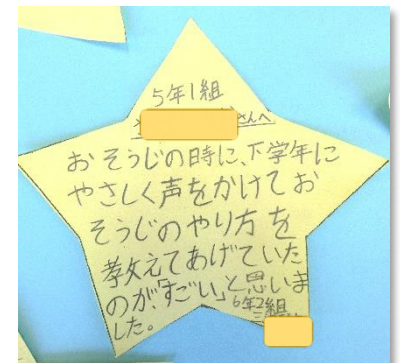 5年1組
さんへ
おそうじの時に、下学年に
やさしく声をかけてお
そうじのやり方を
教えてあげていた
のが「すごい」と思いま
した。
6年2組